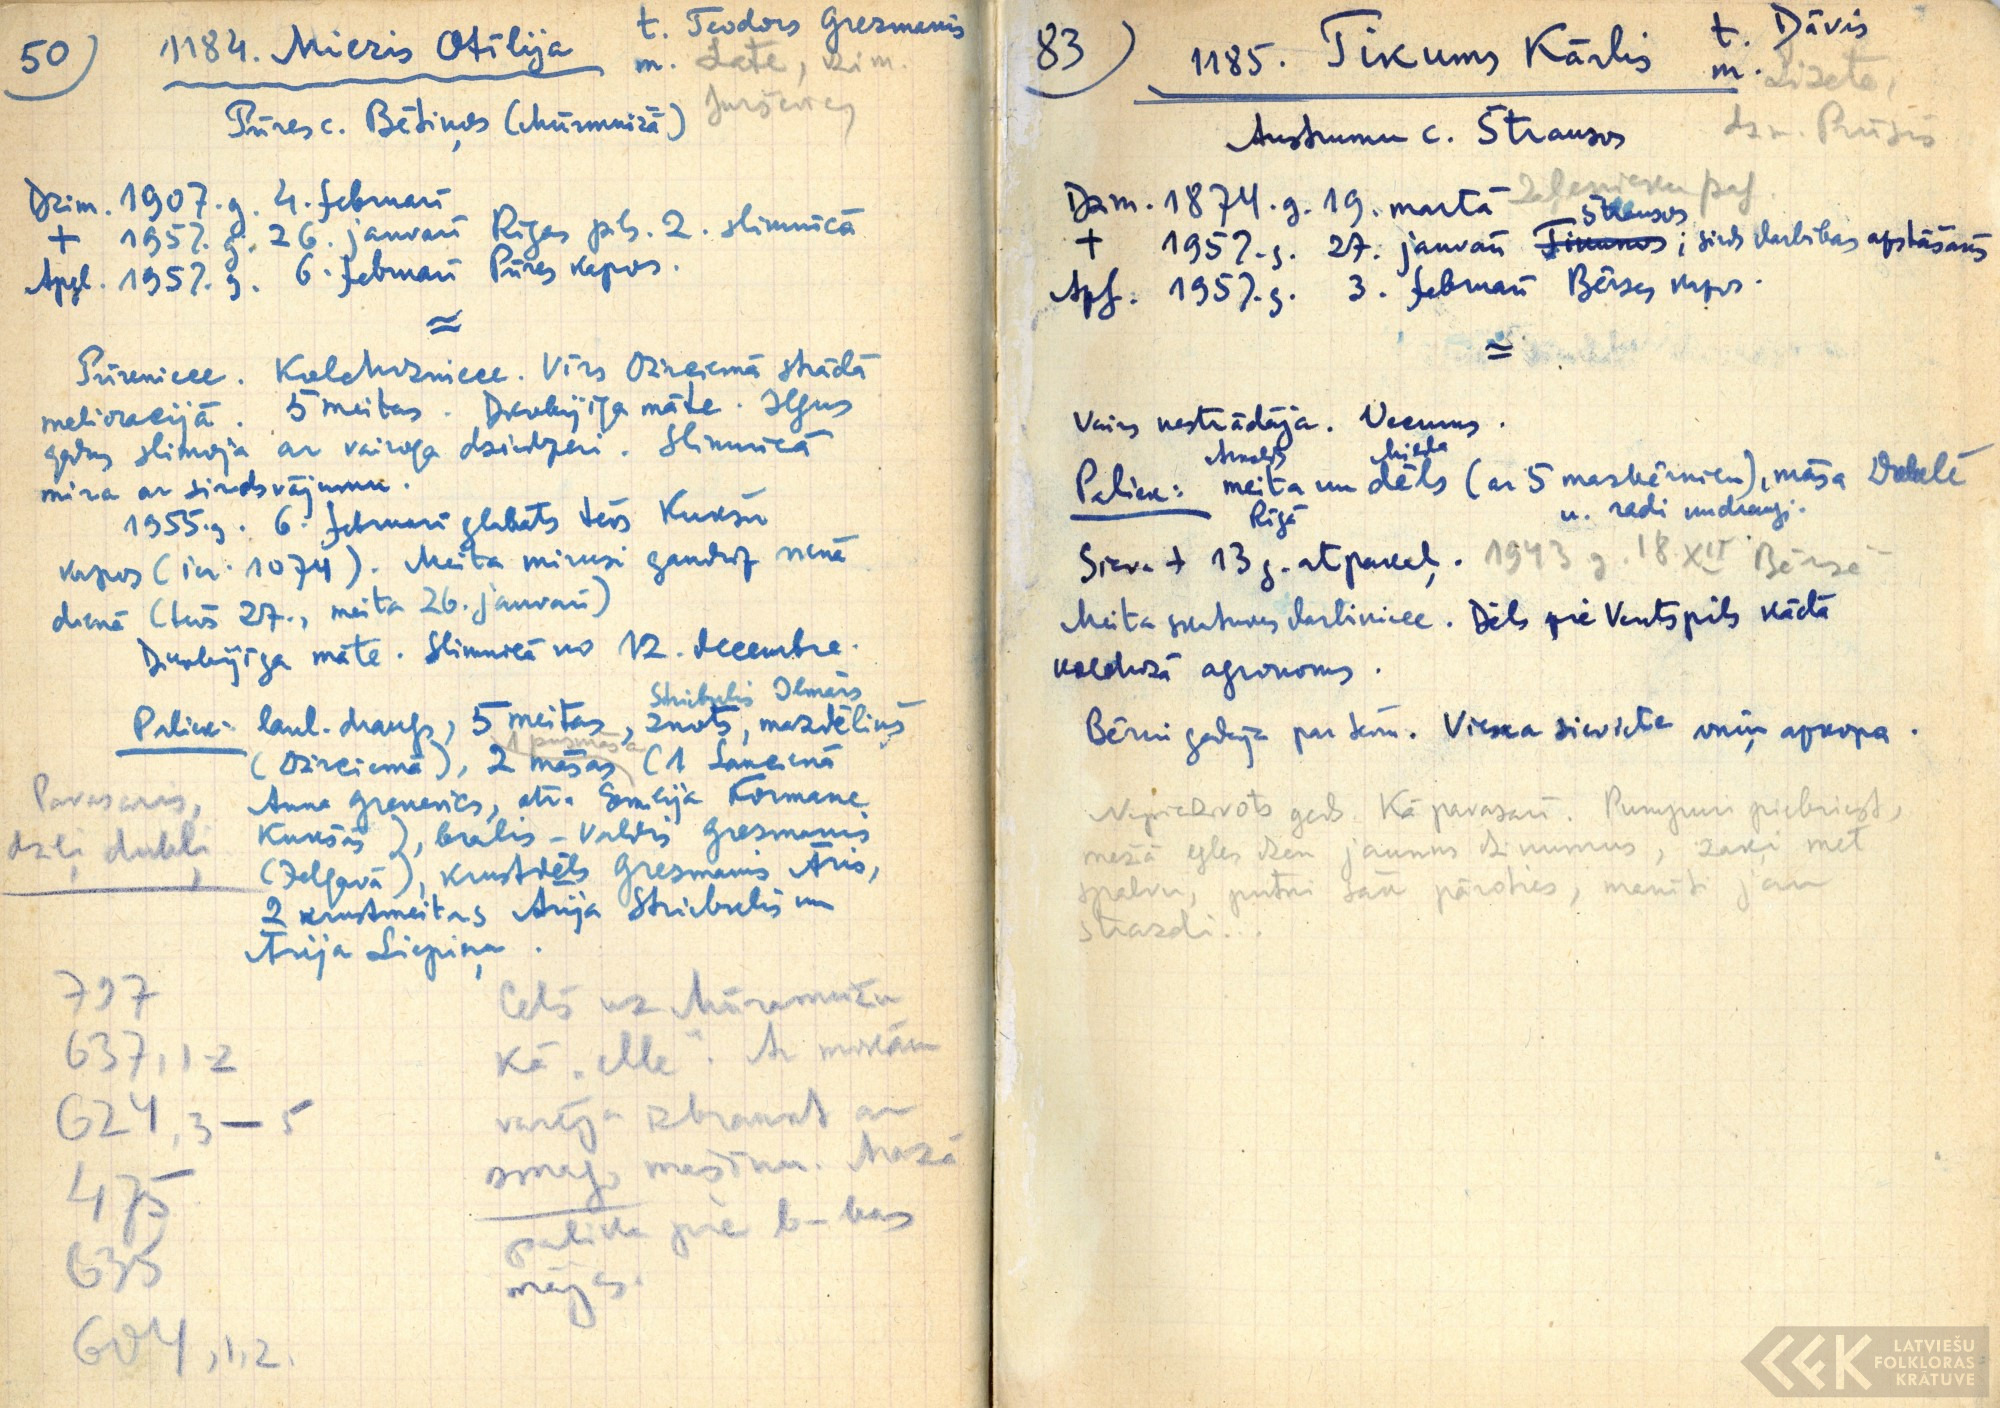 50)
1184. Miezis Otīlija
t. Teodors Grezmanis
m. Late, dzim.
Pūres c. Bētiņos (Mūrmuižā)
Dzim. 1907. g. 4. februārī
+ 1957. g. 26. janvārī Rīgas pils. 2. slimnīcā
Apgl. 1957. g. 6. februārī Pūres kapos.
≃
Pūreniece. Kolchozniece. Vīrs Dzirciemā strādā
meliorācijā. 5 meitas. Dievbijīga māte. Ilgus
gadus slimoja ar vairoga dziedzeri. Slimnīcā
mira ar sirdsvājumu.
1955. g. 6. februārī glabāts tēvs Kukšu
kapos (ier. 1074). Meita mirusi gandrīz vienā
dienā (tēvs 27., meita 26. janvārī)
Dievbijīga māte. Slimnīcā no 12. decembra.
Striebulis Ilmārs
Paliek: laul. draugs, 5 meitas, znots, mazdēliņš
1 pusmāsa
(Dzirciemā), 2 māsas (1 Lancienā
Anna Grenevics, otra Emīlija Formane
Kukšās), brālis – Valdis Grezmanis
(Jelgavā), krustdēls Grezmanis Āris,
2 krustmeitas Ārija Striebulis un
Ārija Liepiņa.
Pavasaris,
dziļi dubļi
797
637, 1-2
624, 3 – 5
475
635
604, 1, 2.
Ceļš uz Mūrmuižu
kā „elle". Ar mokām
varēja izbraukt ar
smago mašīnu. Mazā
palika pie b-bas
mājas.
83)
1185. Tikums Kārlis
t. Dāvis
m. Lizete,
dzm. Prūsis
Austrumu c. Štrausos
Dzim. 1874. g. 19. martā Zaļenieku pag.
Štrausos
+ 1957. g. 27. janvārī Tikumos; sirds darbības apstāšanās
Apg. 1957. g. 3. februārī Bērzes kapos.
≃
Vairs nestrādāja. Vecums.
Arnolds Milda
Paliek: meita un dēls (ar 5 mazbērniem), māsa Dobelē
Rīgā u. radi un draugi.
Sieva + 13 g. atpakaļ. 1943 g. 18. XII Bērzē
Meita darbiniece. Dēls pie Ventspils kādā
kolchozā agronoms.
Bērni gādāja par tēvu. Vieska sieviete viņu apkopa.
Nepiedzīvots gads. Kā pavasarī. Pumpuri piebriest,
mežā egles dzen jaunus dzinumus, zaķi met
spalvu, putni sāk pāroties, manīti jau
strazdi...
LATVIEŠU
FOLKLORAS
KRĀTUVE